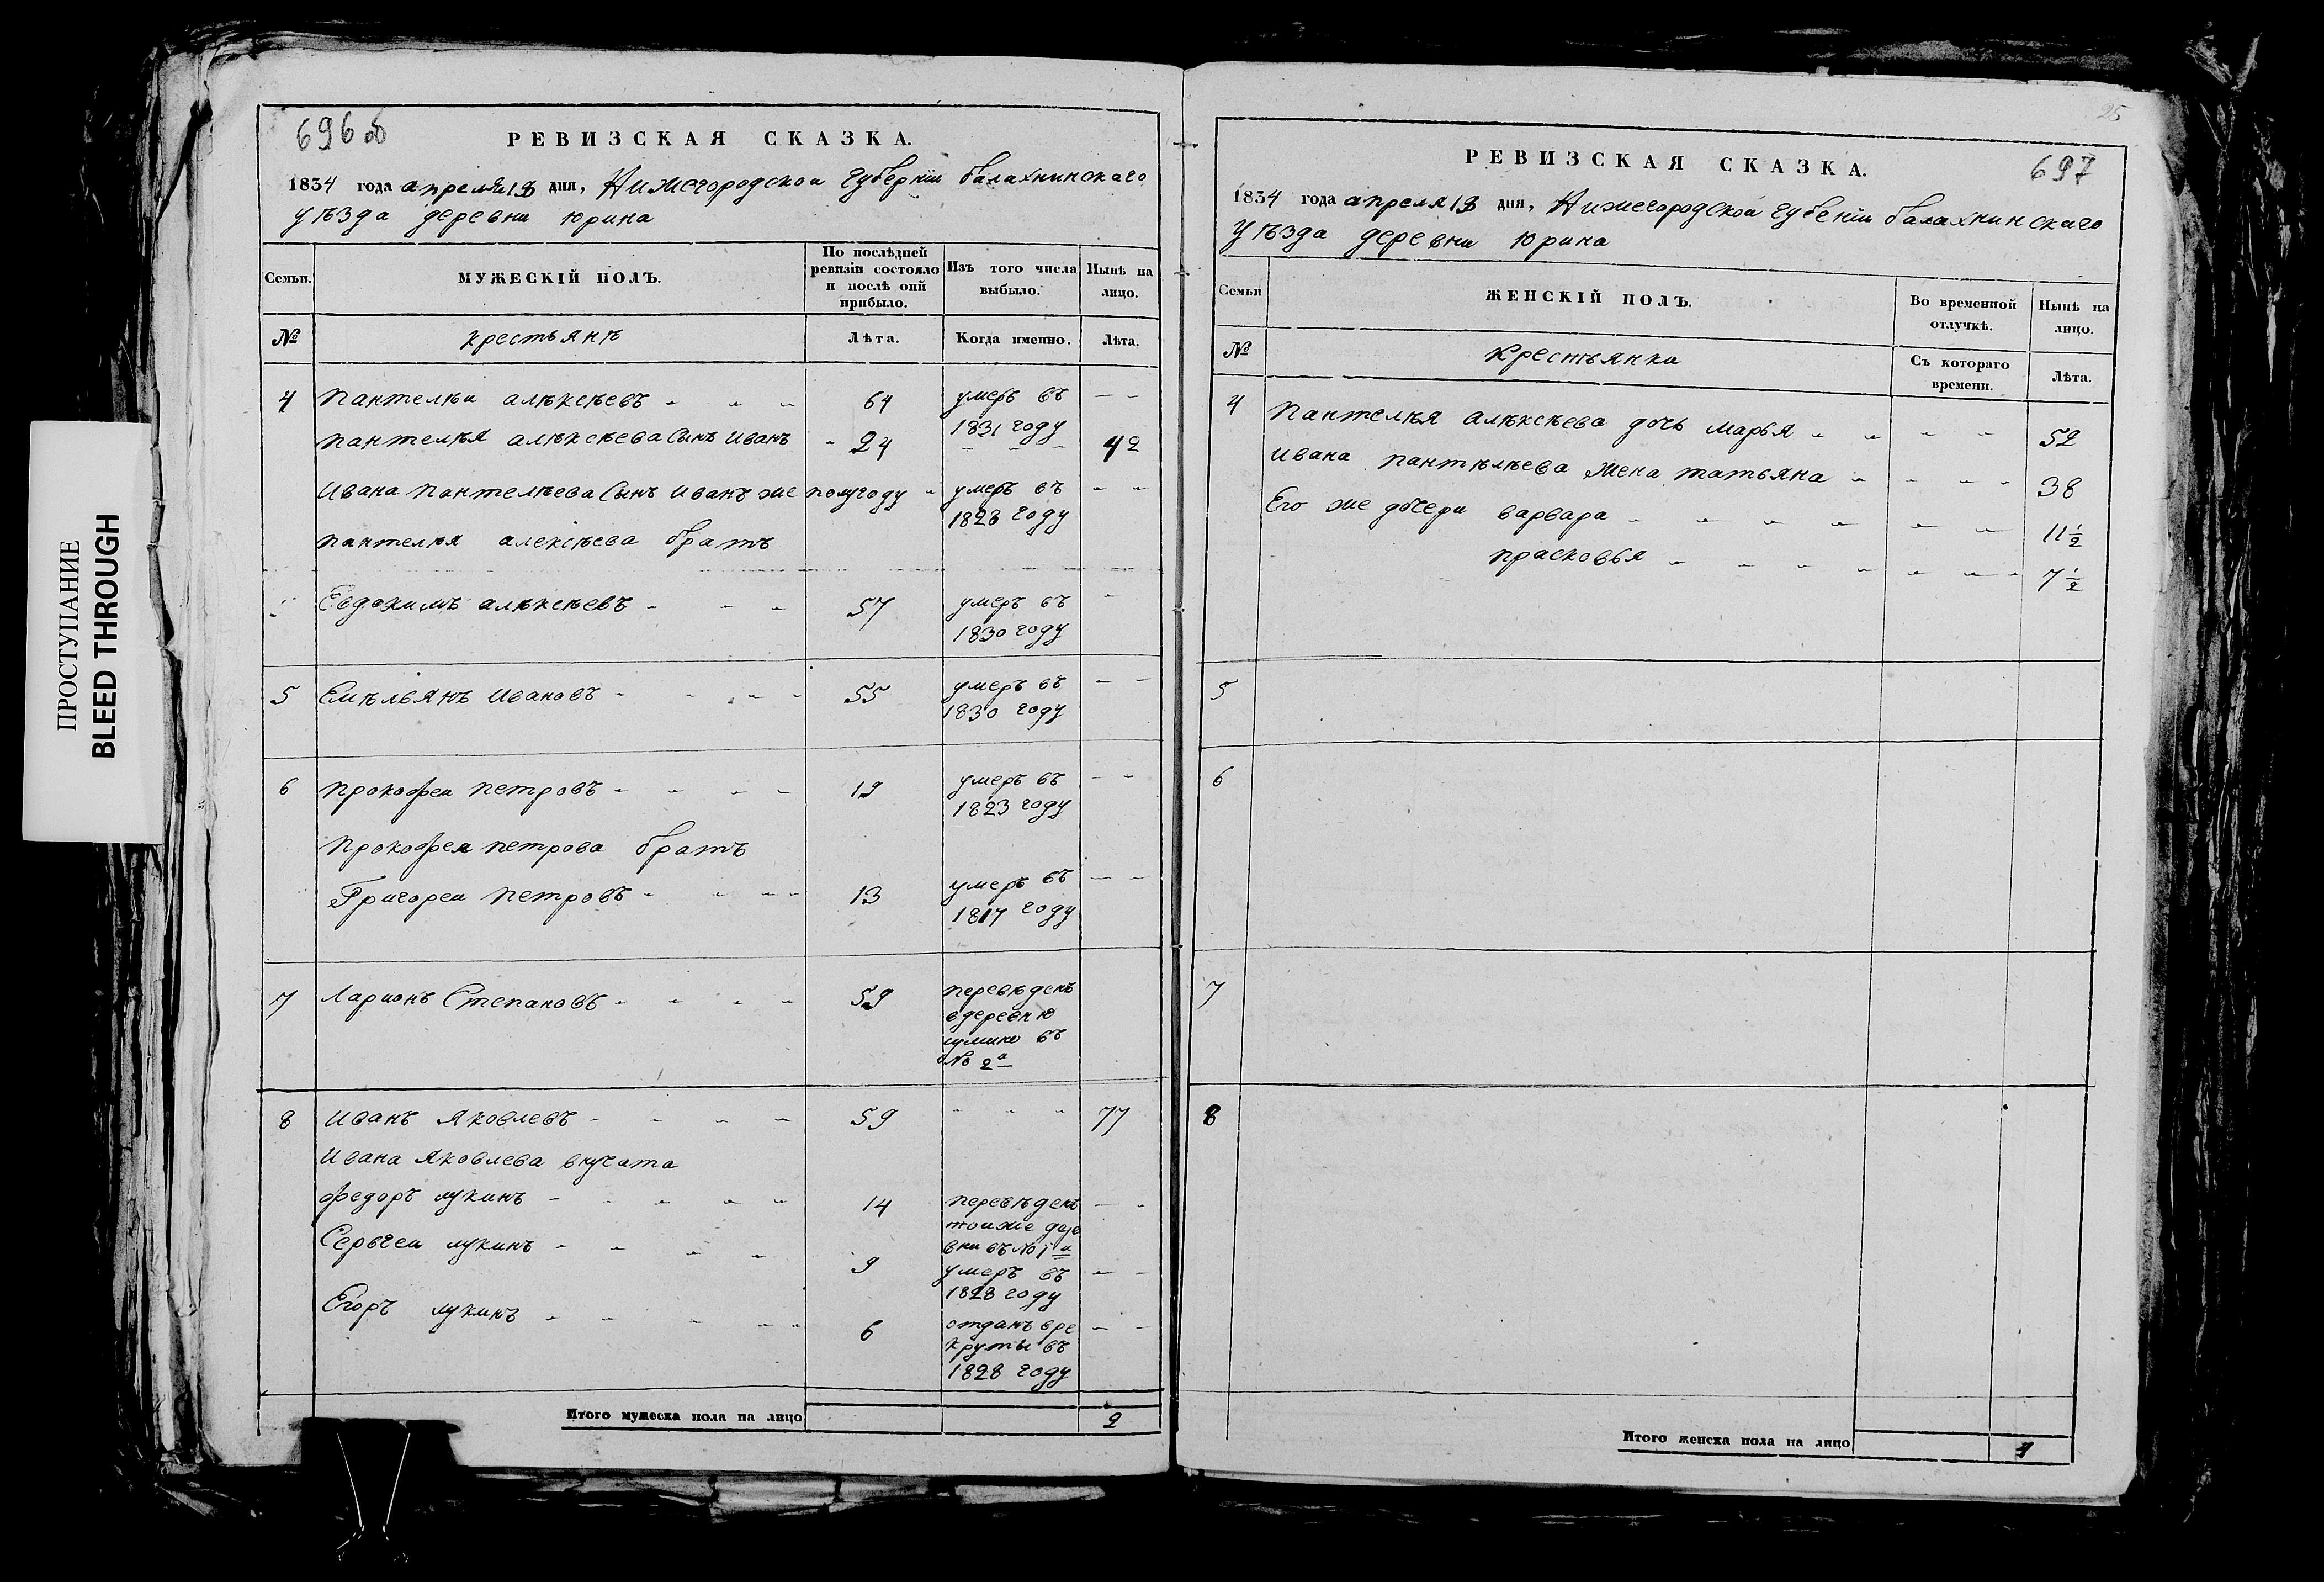 ПРОСТУПАНИЕ
BLEED THROUGH
696 об
РЕВИЗСКАЯ СКАЗКА.
1834 года апреля 18 дня, Нижегородскои губернiи балахнинскаго
уѣзда деревни юрина
Семьи. МУЖЕСКІЙ ПОЛЪ. По послѣдней ревизіи состояло и послѣ оной прибыло. Изъ того числа выбыло. Нынѣ на лицо.
№ крестьянѣ Лѣта. Когда именно. Лѣта.
4 Пантелѣи алѣксѣевъ 64 умеръ въ
1831 году
Пантелѣя алѣксѣева Сынъ иванъ 24 42
Ивана Пантелѣева Сынъ иванъ же полугоду умеръ въ
1823 году
пантелѣя алексѣева братъ
Евдокимъ алѣксѣевъ 57 умеръ въ
1830 году
5 Емѣльянъ ивановъ 55 умеръ въ
1830 году
6 прокофеи петровъ 19 умеръ въ
1823 году
прокофея петрова братъ
Григореи петровъ 13 умеръ въ
1817 году
7 Ларионъ Степановъ 59 перевѣденъ
вдеревню
въ
№ 2а
8 иванъ яковлевъ 59 77
ивана яковлева внучата
федоръ лукинъ 14 перевѣденъ
тоиже дере
вни въ №1и
Сергеи лукинъ 9 умеръ въ
1828 году
Егоръ лукинъ 6 отданъ вре
круты въ
1828 году
Итого мужеска пола на лицо 2
25
РЕВИЗСКАЯ СКАЗКА.
697
1834 года апреля 18 дня, Нижегородскои губенiи балахнинскаго
уѣзда деревни юрина
Семьи ЖЕНСКІЙ ПОЛЪ. Во временной отлучкѣ. Нынѣ на лицо.
№ Крестьянки Съ котораго времени. Лѣта.
4 Пантелѣя алѣксѣева дочь марья 52
ивана пантѣлѣева жена татьяна 38
Его же дочери варвара 11 1/2
прасковья 7 1/2
5
6
7
8
Итого женска пола на лицо 4